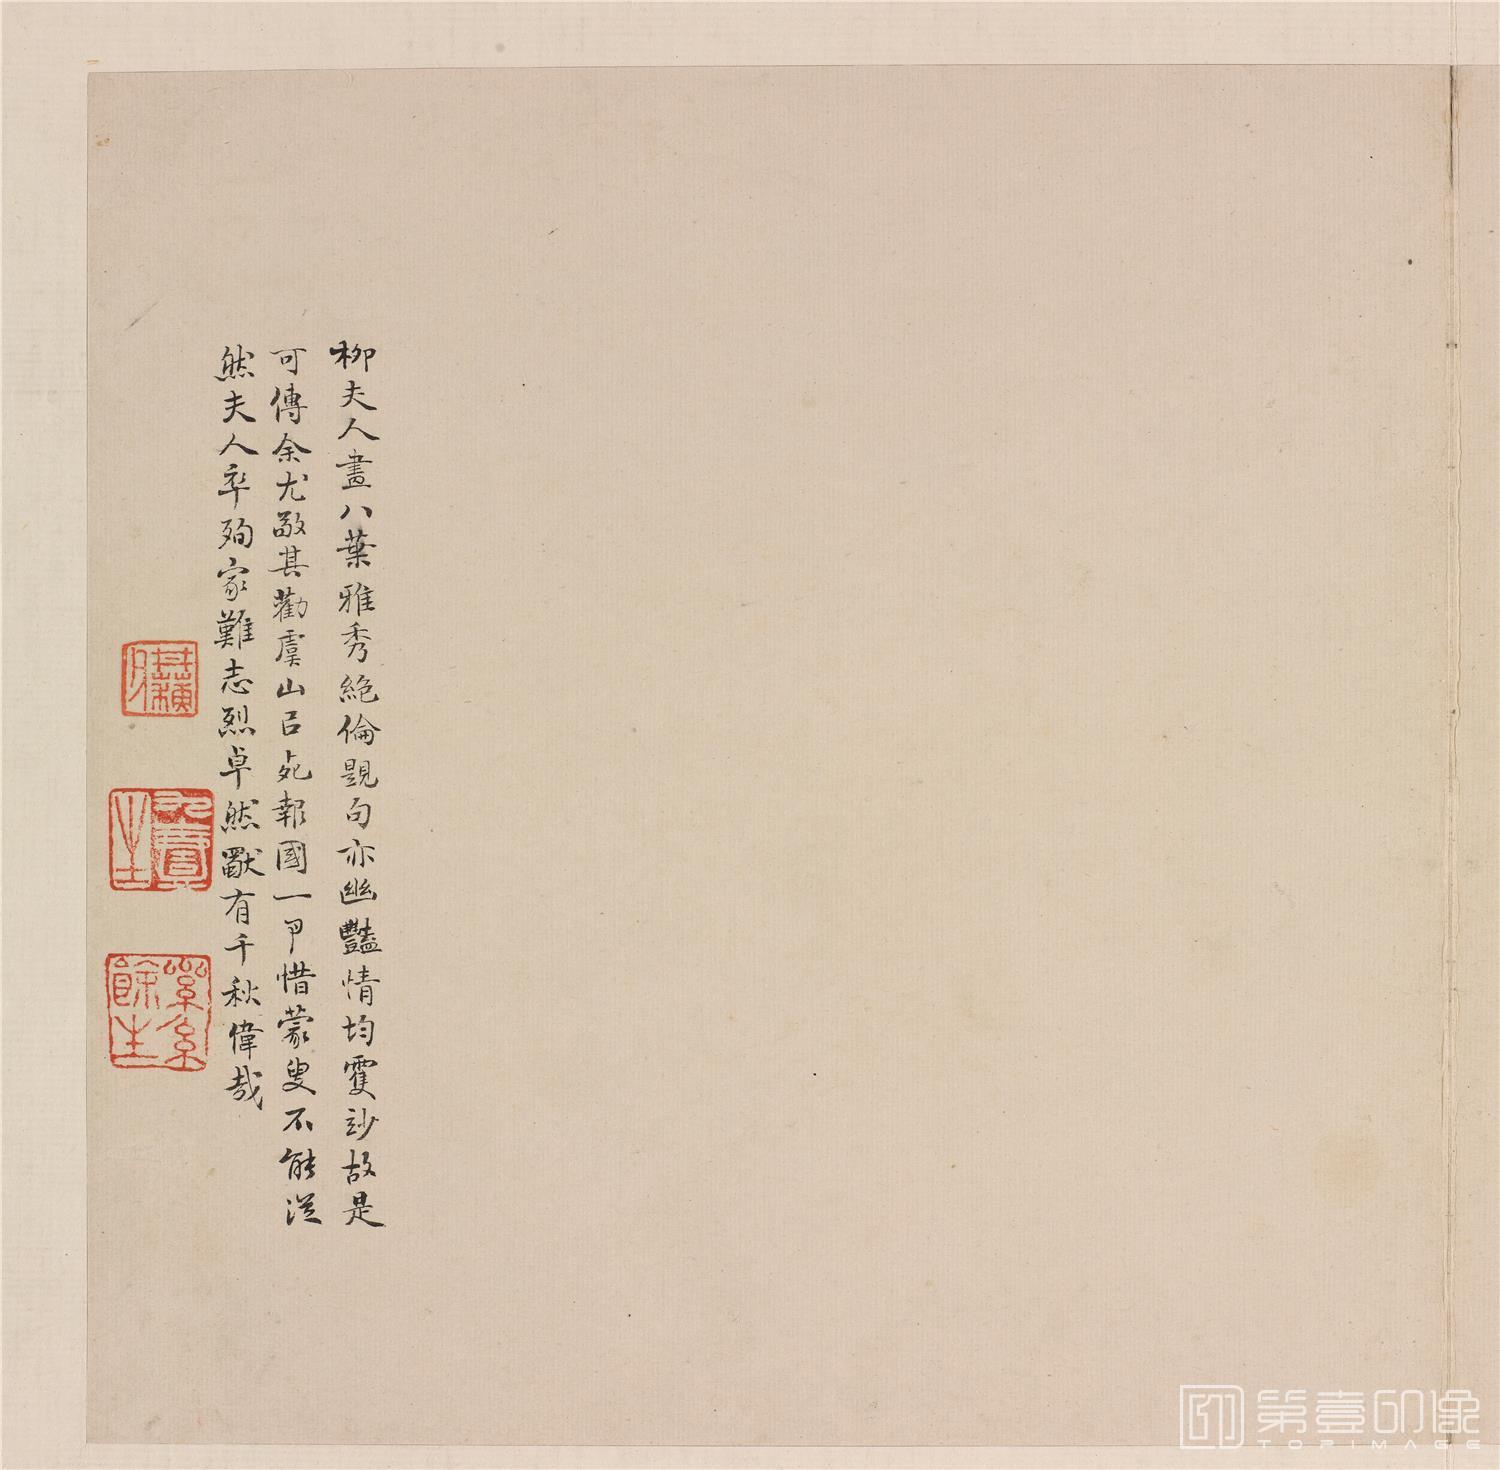 柳夫人畫八葉雅秀絕倫題句亦幽豔情均雙妙故是
可傳余尤敬其勸虞山以死報國一事惜蒙叟不能從
然夫人卒殉家難志烈卓然獸有千秋偉哉
餘生
第壹印像
TOPIMAGE